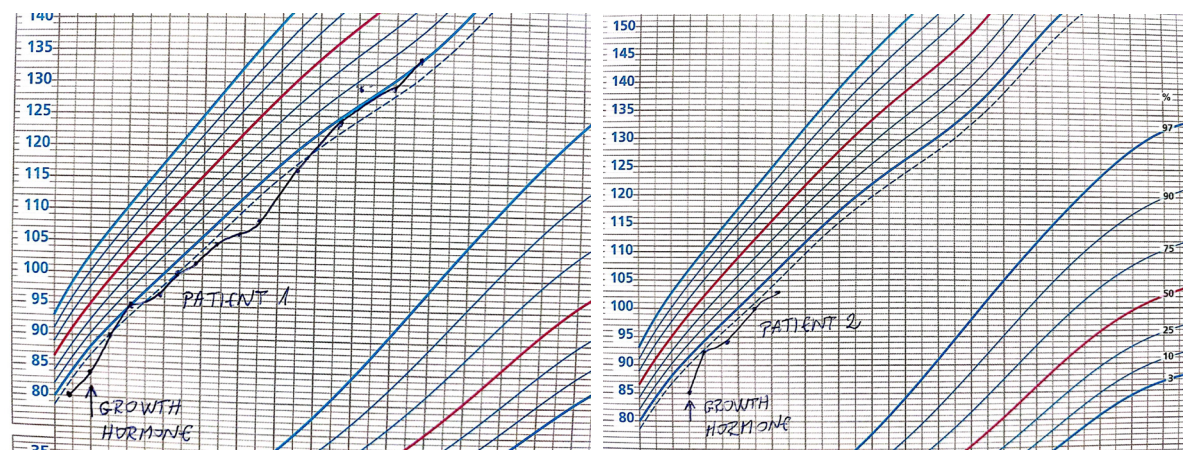 140
135
130
125
120
115
110
105
100
95
90
85
80
35
PATIENT 1
GROWTH
HORMONE
150
145
140
135
130
125
120
115
110
105
100
95
90
85
80
%
97
90
75
50
25
10
3
PATIENT 2
GROWTH
HORMONE